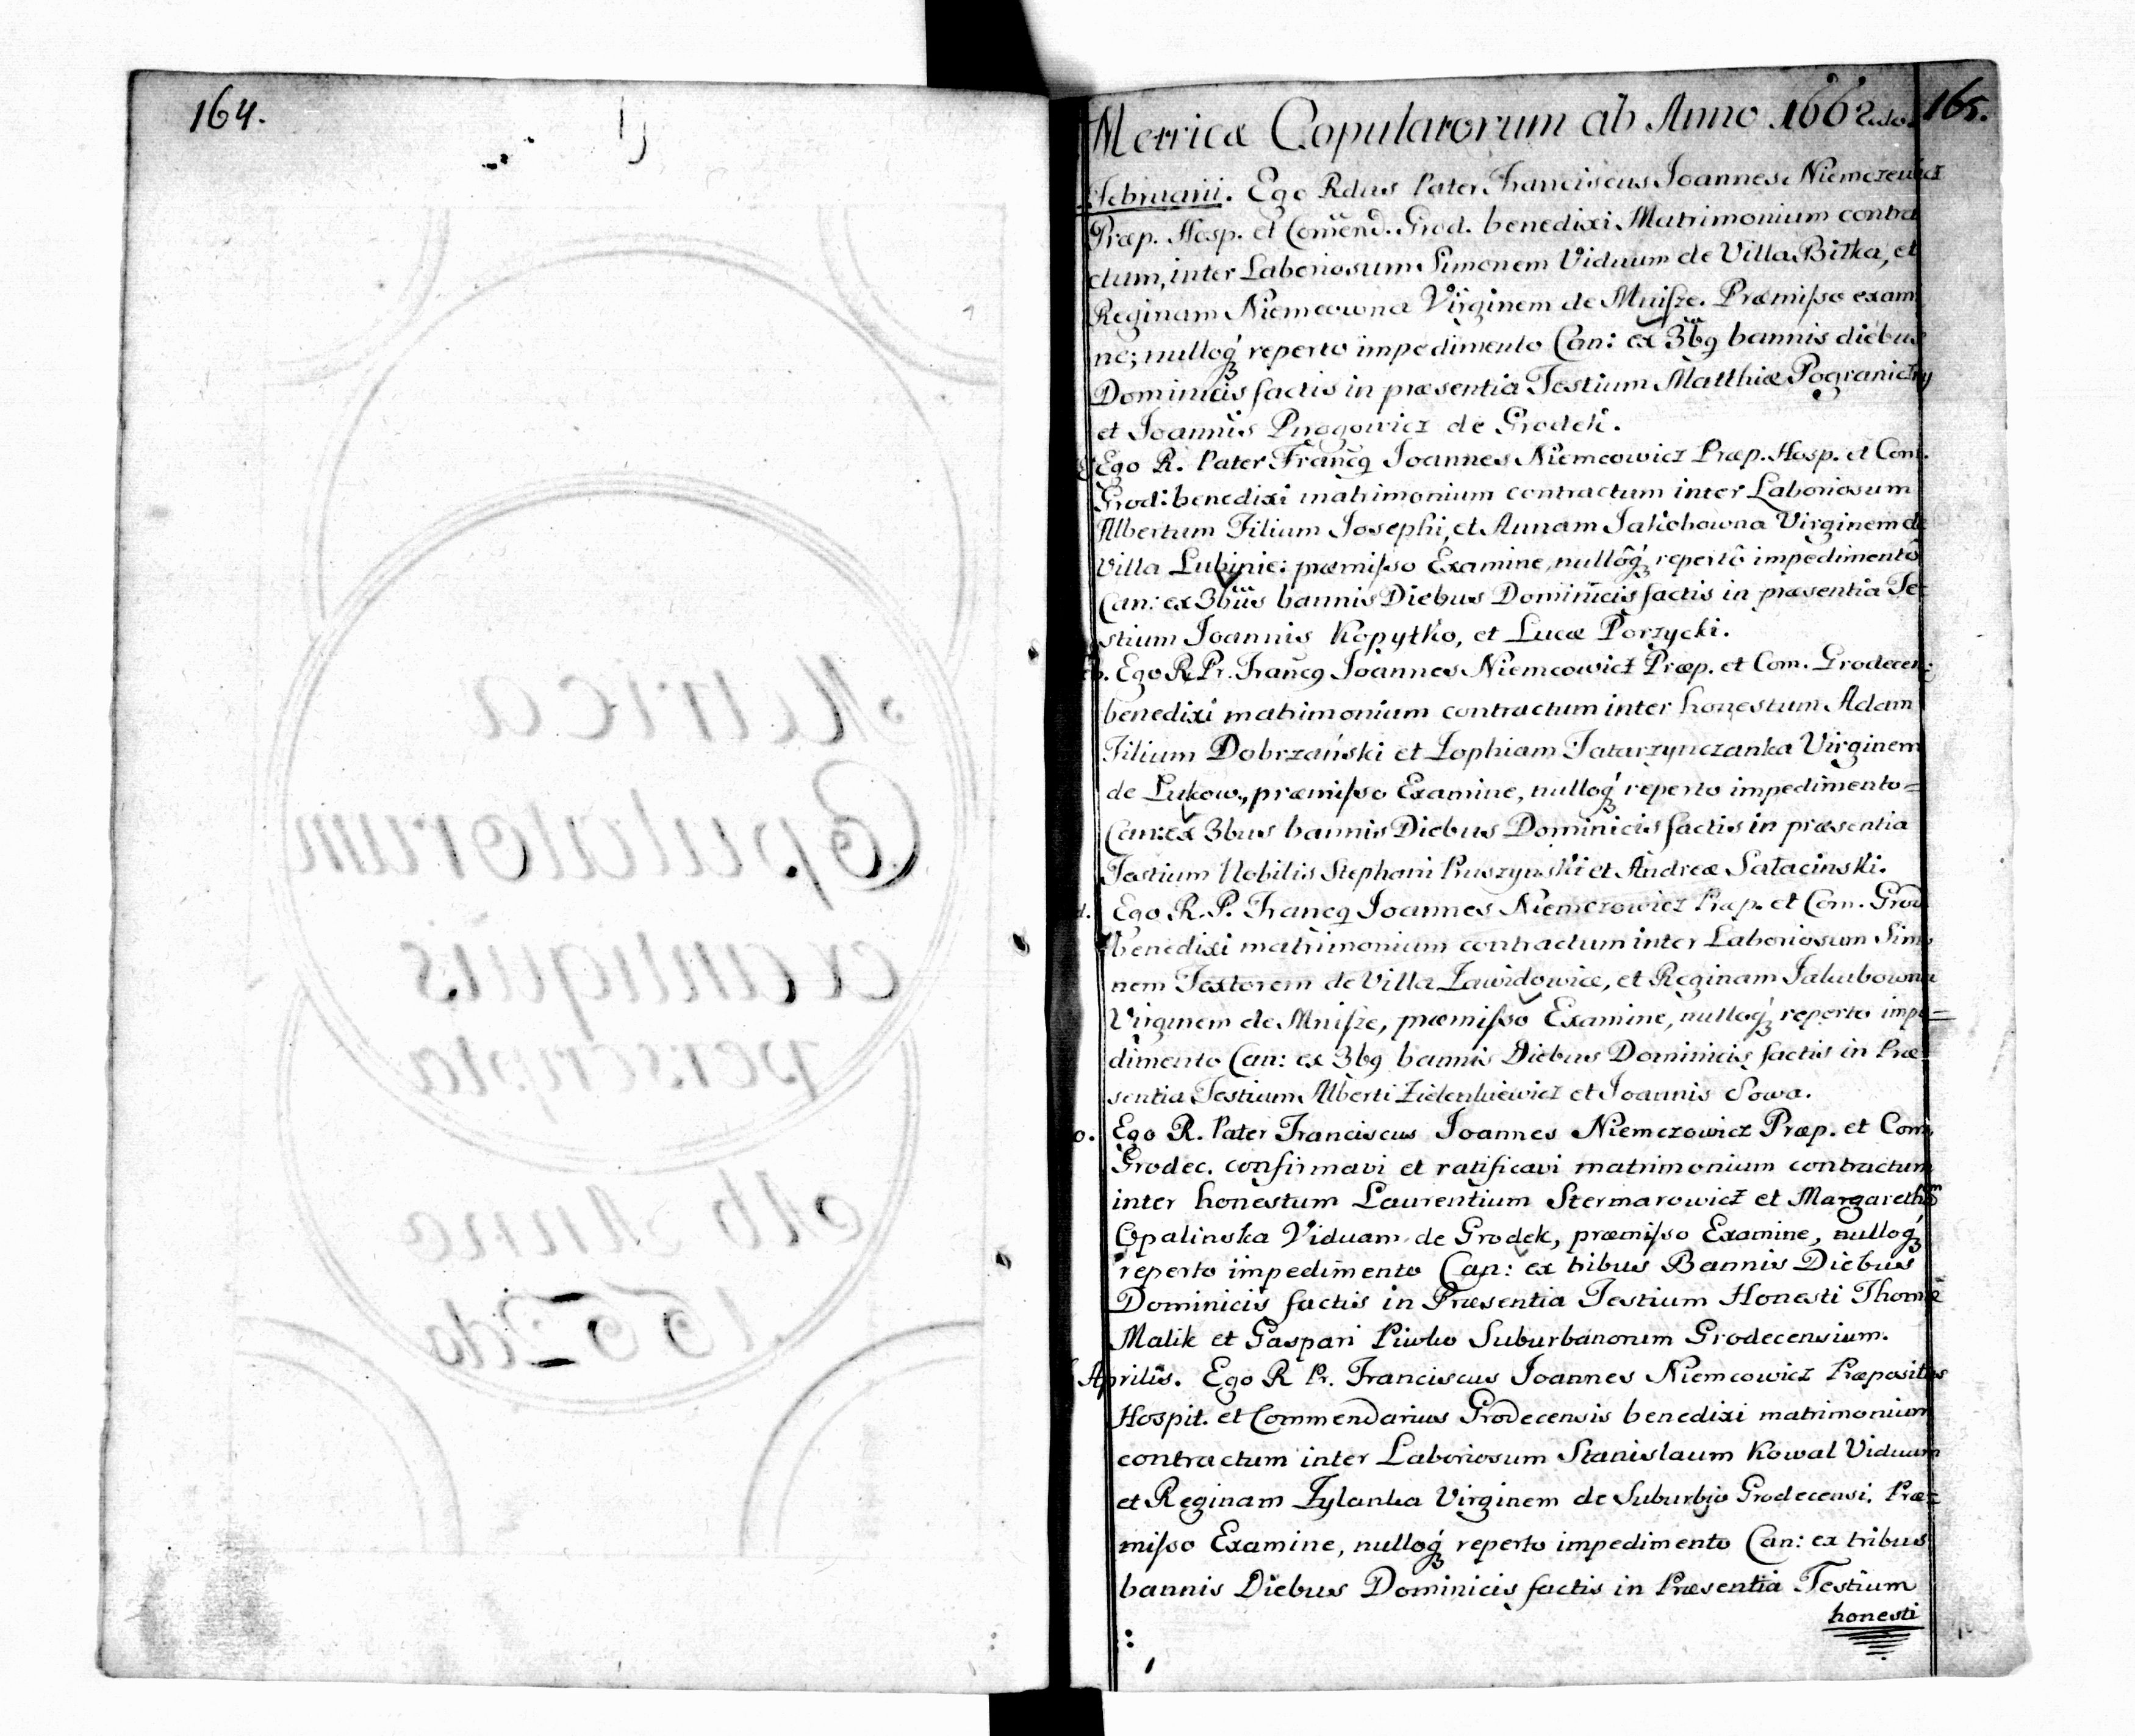 164.
Metrica Copulatorum ab Anno 1662do. 165.
Februarii. Ego Rdus Pater Franciscus Joannes Niemczewicz
Præp. Hosp. et Comend. Grod. benedixi Matrimonium contra
ctum, inter Laboriosum Simonem Viduum de Villa Bitka, et
Reginam Niemcowna Virginem de Mnisze. Præmisso exam
ne; nulloq́ reperto impedimento Can: ex 3bq bannis diebus
Dominicis factis in præsentia Testium Matthiæ Pograniczny
et Joannis Pnogowicz de Grodek.
Ego R. Pater Francq Joannes Niemcowicz Præp. Hosp. et Com.
Grod: benedixi matrimonium contractum inter Laboriosum
Albertum Filium Josephi, et Annam Jakobowna Virginem de
Villa Lubinie: præmisso Examine, nullôq́ repertô impedimentô
Can: ex 3bus bannis Diebus Dominicis factis in præsentia Te-
stium Joannis Kopytko, et Lucæ Porzycki.
Ego R. Pr. Francq Joannes Niemcowicz Præp. et Com. Grodecen:
benedixi matrimonium contractum inter honestum Adam
Filium Dobrzański et Zophiam Tatarzynczanka Virginem
de Lukow., præmisso Examine, nulloq́ reperto impedimento=
Can: ex 3bus bannis Diebus Dominicis factis in præsentia
Testium Nobilis Stephani Pruszynski et Andreæ Sałacinski.
Ego R. P. Francq Joannes Niemczowicz Præp. et Com. Grod
benedixi matrimonium contractum inter Laboriosum Simo
nem Textorem de Villa Zawidowice, et Reginam Jakubowna
Virginem de Mnisze, præmisso Examine, nulloq́ reperto impe=
dimento Can: ex 3bq bannis Diebus Dominicis factis in Præ-
sentia Testium Alberti Zielenkiewicz et Joannis Sowa.
Ego R. Pater Franciscus Joannes Niemczowicz Præp. et Com.
Grodec. confirmavi et ratificavi matrimonium contractum
inter honestum Laurentium Stermarowicz et Margaretham
Opalinska Viduam de Grodek, præmisso Examine, nulloq́
reperto impedimento Can: ex tribus Bannis Diebus
Dominicis factis in Præsentia Testium Honesti Thomæ
Malik et Gaspari Piwko Suburbanorum Grodecensium.
Aprilis. Ego R Pr. Franciscus Joannes Niemcowicz Præpositus
Hospit. et Commendarius Grodecensis benedixi matrimonium
contractum inter Laboriosum Stanislaum Kowal Viduum
et Reginam Zylanka Virginem de Suburbjo Grodecensi. Præ=
misso Examine, nulloq́ reperto impedimento Can: ex tribus
bannis Diebus Dominicis factis in Præsentia Testium
honesti